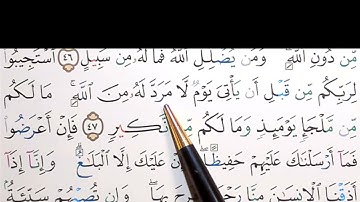 مِّن دُونِ ٱللَّهِ ۗ وَمَن يُضْلِلِ ٱللَّهُ فَمَا لَهُۥ مِن سَبِيلٍ ٤٦ ٱسْتَجِيبُوا۟
لِرَبِّكُم مِّن قَبْلِ أَن يَأْتِىَ يَوْمٌ لَّا مَرَدَّ لَهُۥ مِنَ ٱللَّهِ ۚ مَا لَكُم
مِّن مَّلْجَإٍ يَوْمَئِذٍ وَمَا لَكُم مِّن نَّكِيرٍ ٤٧ فَإِنْ أَعْرَضُوا۟
فَمَآ أَرْسَلْنَٰكَ عَلَيْهِمْ حَفِيظًا ۖ إِنْ عَلَيْكَ إِلَّا ٱلْبَلَٰغُ ۗ وَإِنَّآ إِذَآ
أَذَقْنَا ٱلْإِنسَٰنَ مِنَّا رَحْمَةً فَرِحَ بِهَا ۖ وَإِن تُصِبْهُمْ سَيِّئَةٌۢ